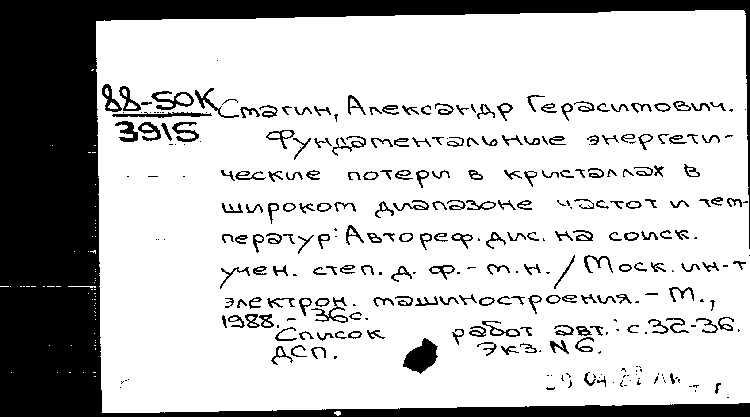 88-50К
3915
Смагин, Александр Герасимович.
Фундаментальные энергети-
ческие потери в кристаллах в
широком диапазоне частот и тем-
ператур: Автореф. дис. на соиск.
учен. степ. д. ф.-м.н. / Моск. ин-т
электрон. машиностроения. - М.,
1988. - 36с.
Список работ авт.: с.32-36.
ДСП. Экз. N6.